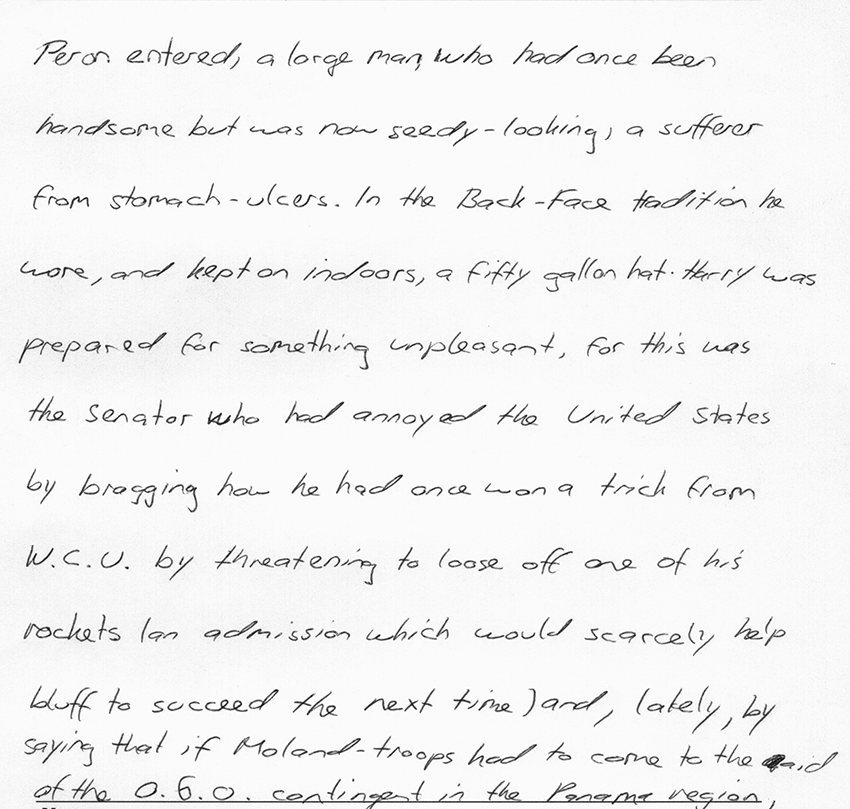 Peron entered, a large man, who had once been
handsome but was now seedy-looking, a sufferer
from stomach-ulcers. In the Back-Face tradition he
wore, and kept on indoors, a fifty gallon hat. Harry was
prepared for something unpleasant, for this was
the Senator who had annoyed the United States
by bragging how he had once won a trick from
W.C.U. by threatening to loose off one of his
rockets (an admission which would scarcely help
bluff to succeed the next time) and, lately, by
saying that if Moland-troops had to come to the aid
of the O.G.O. contingent in the Panama region,